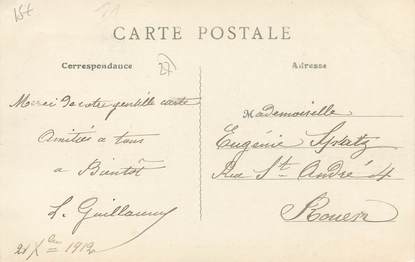 CARTE POSTALE
Correspondance
27
Adresse
Merci de votre gentille carte
Amitiés a tous
a Bientôt
L. Guillaume
21 Xbre 1912
Mademoiselle
Eugénie Spatz
Rue St André 4
Rouen